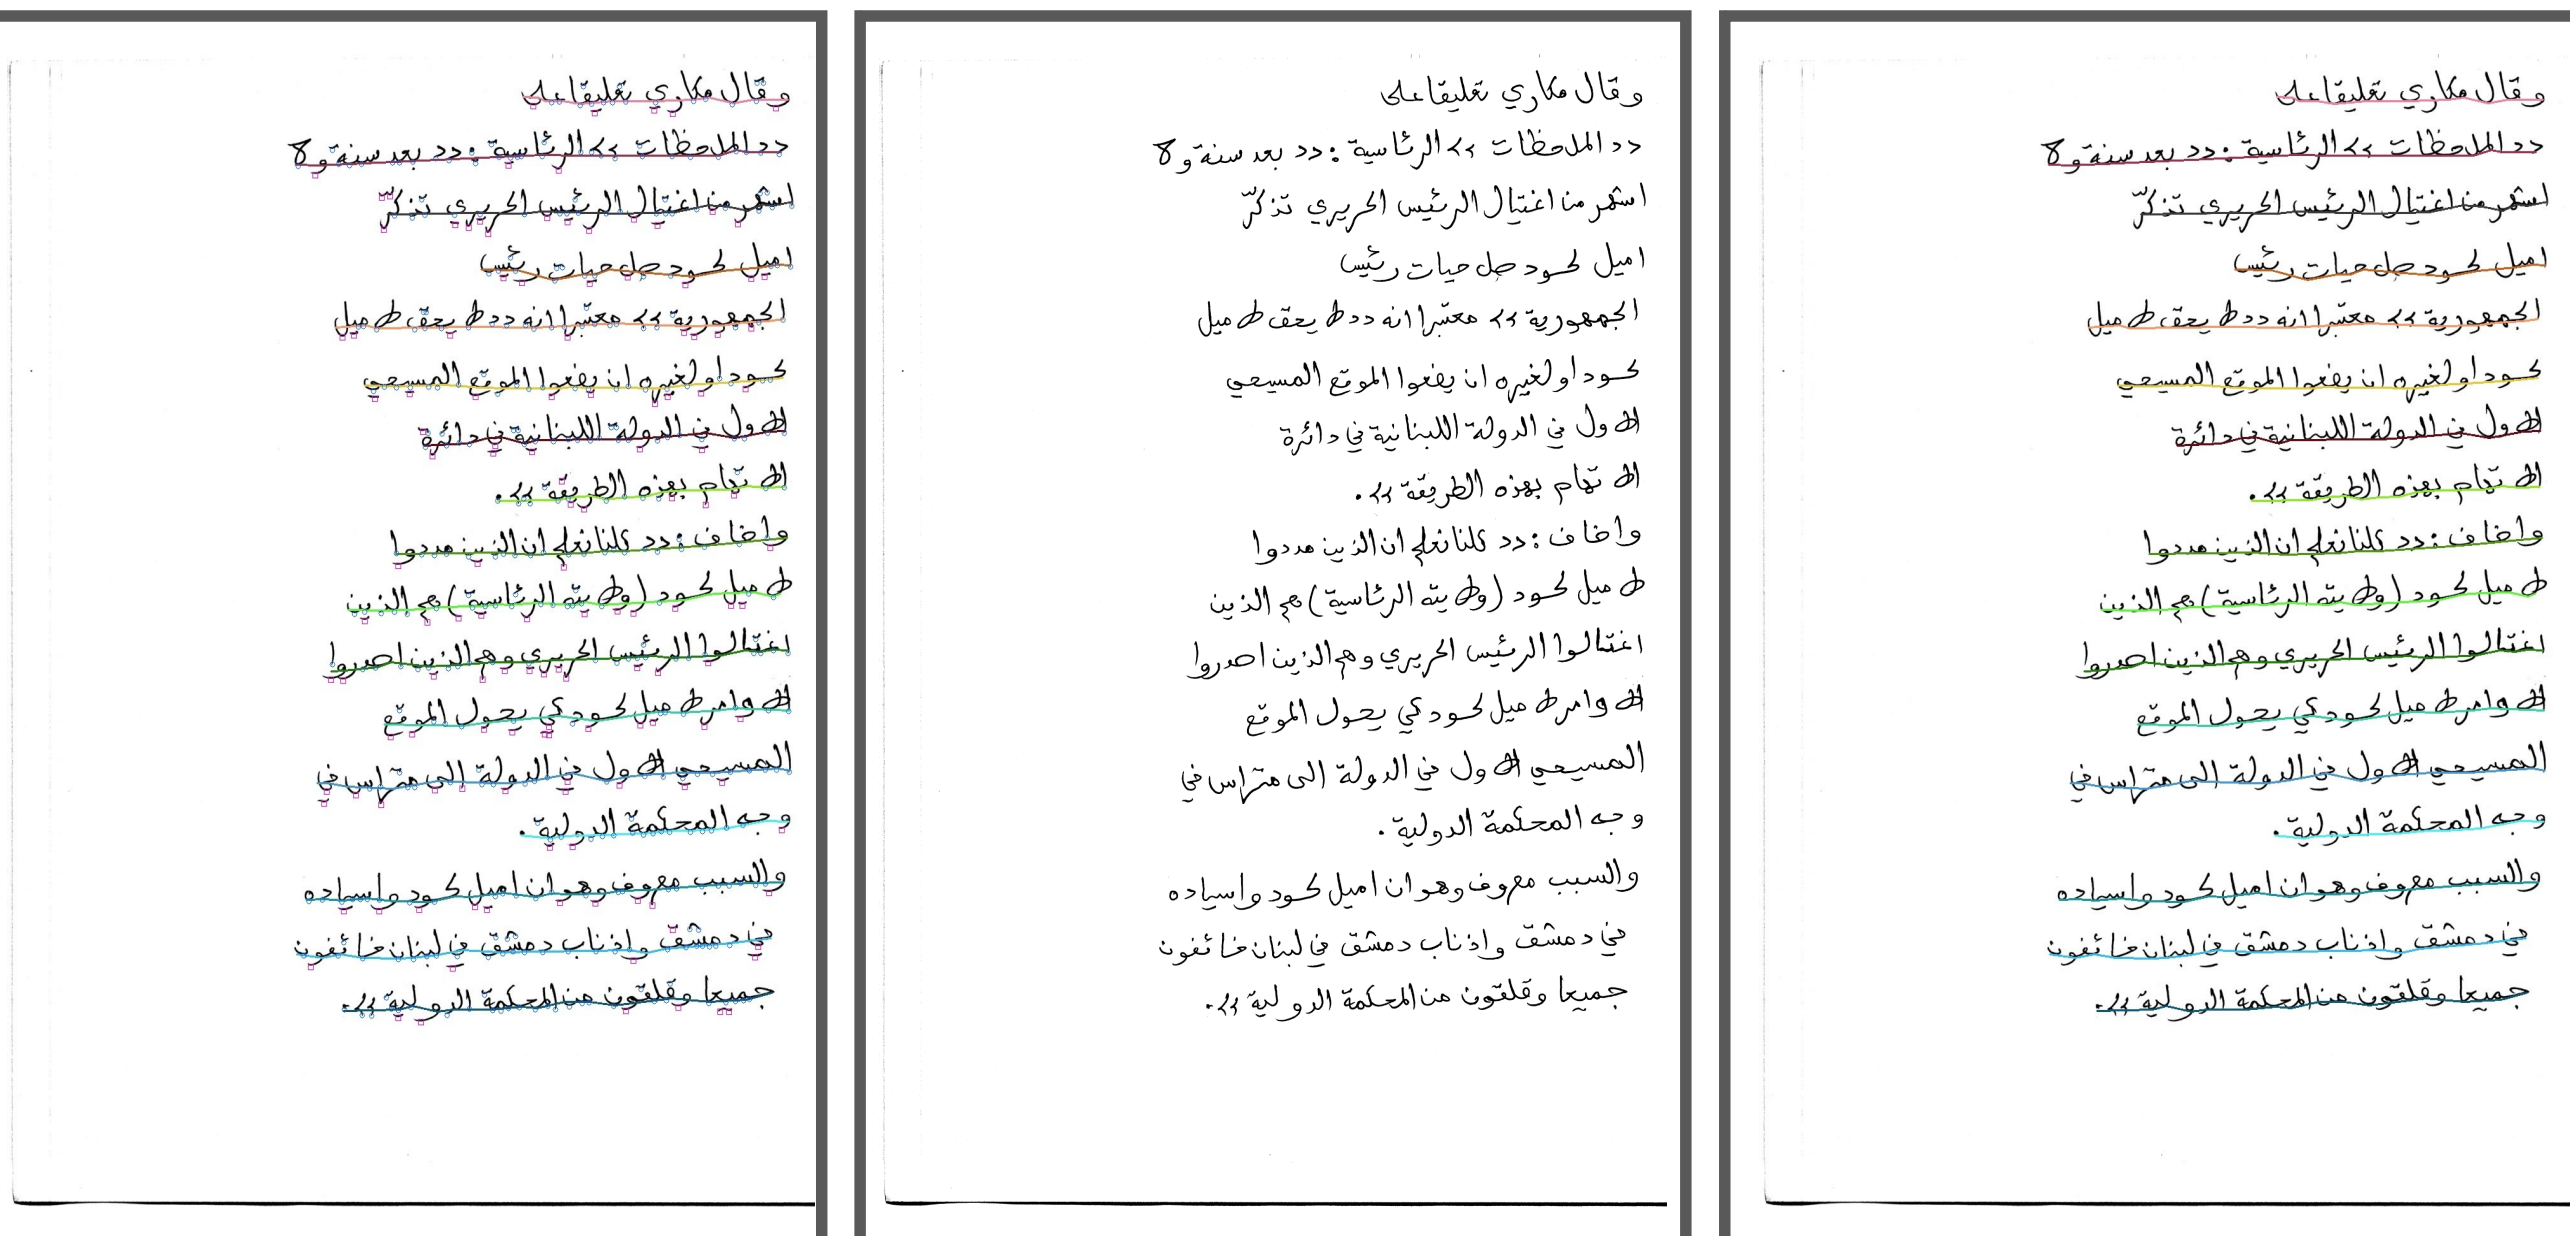 وقال مكاري تعليقا على
« الملاحظات » الرئاسية : « بعد سنة و 8
اشهر من اغتيال الرئيس الحريري تذكّر
اميل لحود صلاحيات رئيس
الجمهورية » معتبرا انه « لا يحق لاميل
لحود او لغيره ان يضعوا الموقع المسيحي
الاول في الدولة اللبنانية في دائرة
الاتهام بهذه الطريقة ».
واضاف : « كلنا نعلم ان الذين مددوا
لاميل لحود (ولايته الرئاسية) هم الذين
اغتالوا الرئيس الحريري وهم الذين اصدروا
الاوامر لاميل لحود كي يحول الموقع
المسيحي الاول في الدولة الى متراس في
وجه المحكمة الدولية.
والسبب معروف وهو ان اميل لحود واسياده
في دمشق واذناب دمشق في لبنان خائفون
جميعا وقلقون من المحكمة الدولية ».
وقال مكاري تعليقا على
« الملاحظات » الرئاسية : « بعد سنة و 8
اشهر من اغتيال الرئيس الحريري تذكّر
اميل لحود صلاحيات رئيس
الجمهورية » معتبرا انه « لا يحق لاميل
لحود او لغيره ان يضعوا الموقع المسيحي
الاول في الدولة اللبنانية في دائرة
الاتهام بهذه الطريقة ».
واضاف : « كلنا نعلم ان الذين مددوا
لاميل لحود (ولايته الرئاسية) هم الذين
اغتالوا الرئيس الحريري وهم الذين اصدروا
الاوامر لاميل لحود كي يحول الموقع
المسيحي الاول في الدولة الى متراس في
وجه المحكمة الدولية.
والسبب معروف وهو ان اميل لحود واسياده
في دمشق واذناب دمشق في لبنان خائفون
جميعا وقلقون من المحكمة الدولية ».
وقال مكاري تعليقا على
« الملاحظات » الرئاسية : « بعد سنة و 8
اشهر من اغتيال الرئيس الحريري تذكّر
اميل لحود صلاحيات رئيس
الجمهورية » معتبرا انه « لا يحق لاميل
لحود او لغيره ان يضعوا الموقع المسيحي
الاول في الدولة اللبنانية في دائرة
الاتهام بهذه الطريقة ».
واضاف : « كلنا نعلم ان الذين مددوا
لاميل لحود (ولايته الرئاسية) هم الذين
اغتالوا الرئيس الحريري وهم الذين اصدروا
الاوامر لاميل لحود كي يحول الموقع
المسيحي الاول في الدولة الى متراس في
وجه المحكمة الدولية.
والسبب معروف وهو ان اميل لحود واسياده
في دمشق واذناب دمشق في لبنان خائفون
جميعا وقلقون من المحكمة الدولية ».